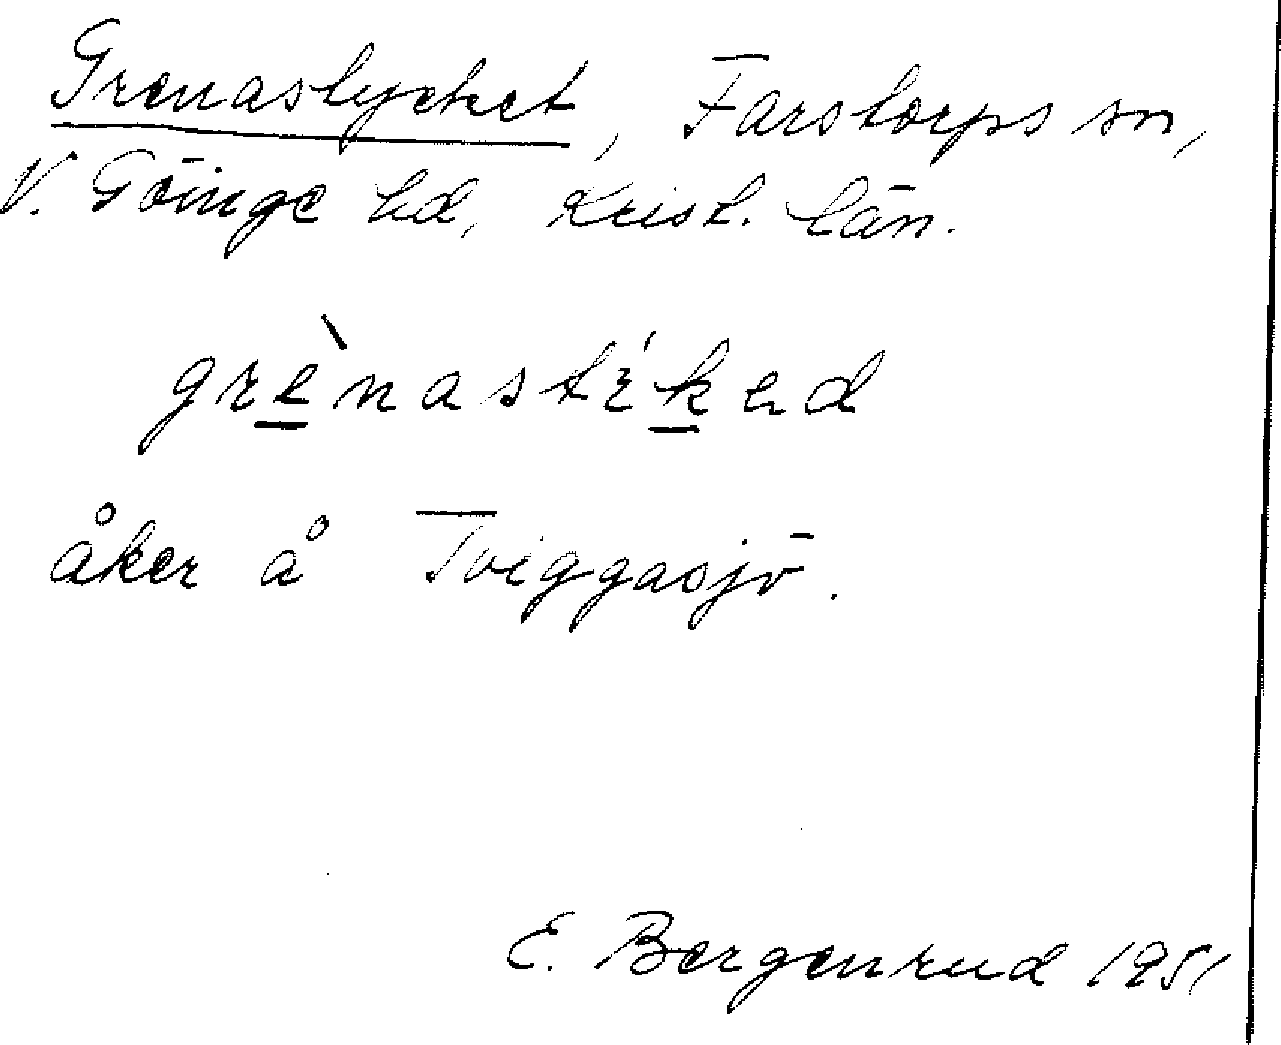 Grenastycket, Farstorps sn,
V. Göinge hd, Krist. län.
grènastýked
åker å Tviggasjö.
E. Bergenrud 1951